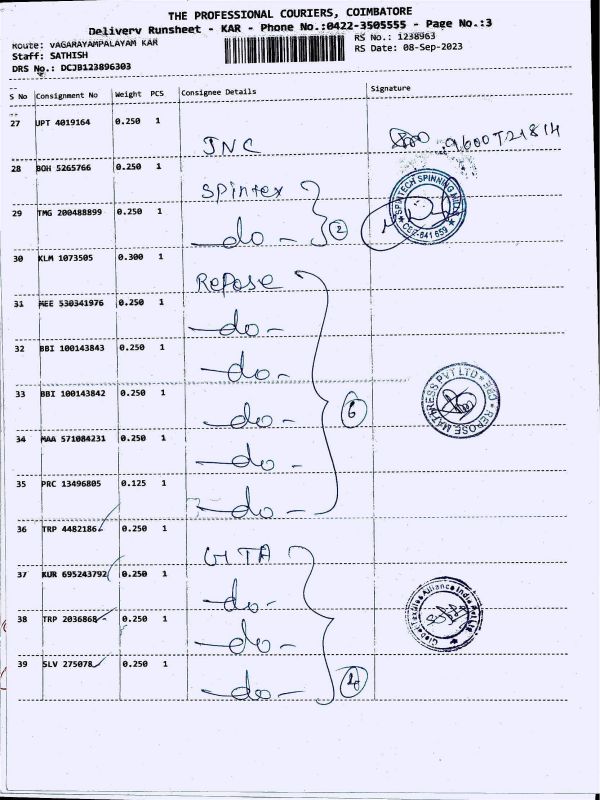 THE PROFESSIONAL COURIERS, COIMBATORE
Delivery Runsheet - KAR - Phone No.:0422-3505555 - Page No.:3
Route: VAGARAYAMPALAYAM KAR
RS No.: 1238963
Staff: SATHISH
RS Date: 08-Sep-2023
DRS No.: DCJB123896303
S No Consignment No Weight PCS Consignee Details Signature
27 UPT 4019164 0.250 1
JNC
28 BOH 5265766 0.250 1
Spintex
29 TMG 200488899 0.250 1
-do- 2
SPINTECH SPINNING MILLS
CEZ-641 659
30 KLM 1073505 0.300 1
Repose
31 MEE 530341976 0.250 1
-do-
32 BBI 100143843 0.250 1
-do-
33 BBI 100143842 0.250 1
-do- 6
REPOSE MATTRESS PVT LTD * CBE *
34 MAA 571084231 0.250 1
-do-
35 PRC 13496805 0.125 1
-do-
36 TRP 4482186 0.250 1
GTA
37 KUR 695243792 0.250 1
-do-
38 TRP 2036868 0.250 1
-do-
Global Textiles Alliance India Pvt Ltd
39 SLV 275078 0.250 1
-do- 4